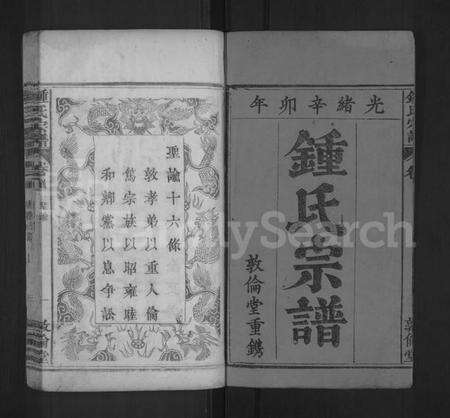 光緒辛卯年
鍾氏宗譜
敦倫堂重鐫
聖諭十六條
敦孝弟以重人倫
篤宗族以昭雍睦
和鄉黨以息爭訟
鍾氏宗譜
敦倫堂
敦倫堂
FamilySearch